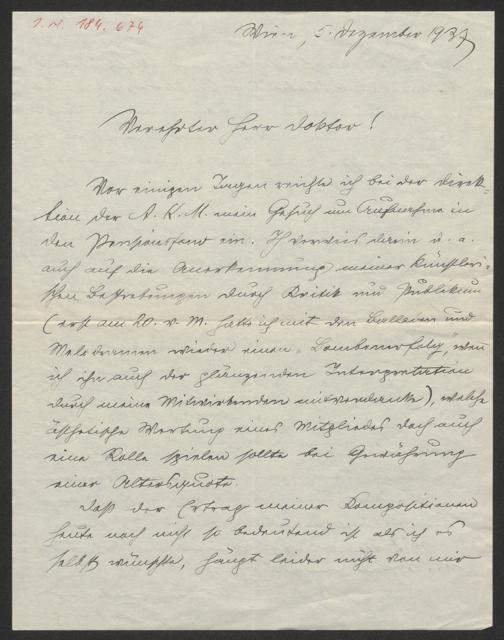 I. N. 184.674
Wien, 5. Dezember 1937
Verehrter Herr Doktor!
Vor einigen Tagen reichte ich bei der Direk-
tion der A. K. M. mein Gesuch um Aufnahme in
den Pensionsfond ein. Ich verwies darin u. a.
auch auf die Anerkennung meiner künstleri-
schen Bestrebungen durch Kritik und Publikum
(erst am 20. v. M. hatte ich mit den Balladen und
Melodramen wieder einen Bombenerfolg, wenn
ich ihn auch der glänzenden Interpretation
durch meine Mitwirkenden mitverdanke), welche
ästhetische Wertung eines Mitgliedes doch auch
eine Rolle spielen sollte bei Gewährung
einer Altersquote.
Daß der Ertrag meiner Kompositionen
heute noch nicht so bedeutend ist als ich es
selbst wünschte, hängt leider nicht von mir